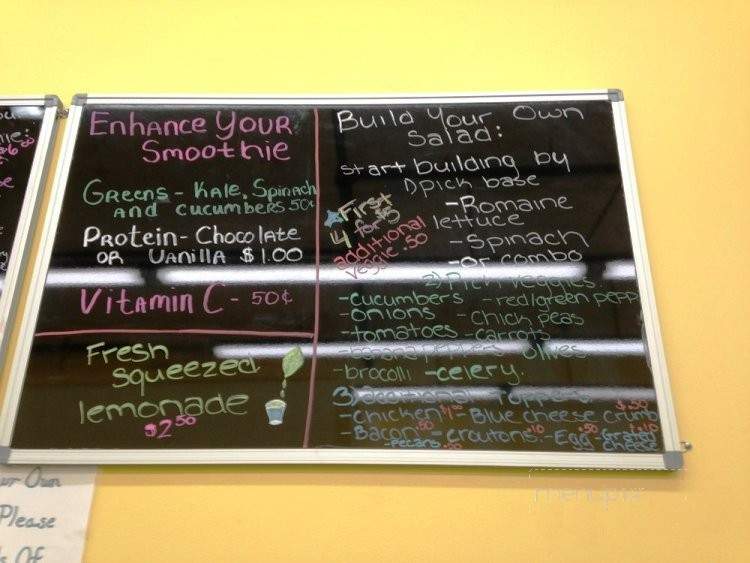 Enhance Your
Smoothie
Greens - Kale, Spinach
and cucumbers 50¢
Protein - Chocolate
or Vanilla $1.00
Vitamin C - 50¢
Fresh
Squeezed
lemonade
$2.50
Build Your Own
Salad:
start building by
1)pick base
-Romaine
lettuce
-Spinach
-or combo
First
4 for $5
additional
veggie .50
2) Pick veggies
-cucumbers -red/green pepp
-onions -Chick peas
-tomatoes -carrots
-banana peppers olives
-brocolli -celery.
3) additional toppers
-Chicken -Blue cheese crumb
-Bacon .50 -croutons .10 -Egg .50 -Grated
-pecans .50 cheese
ur Own
Please
s Of